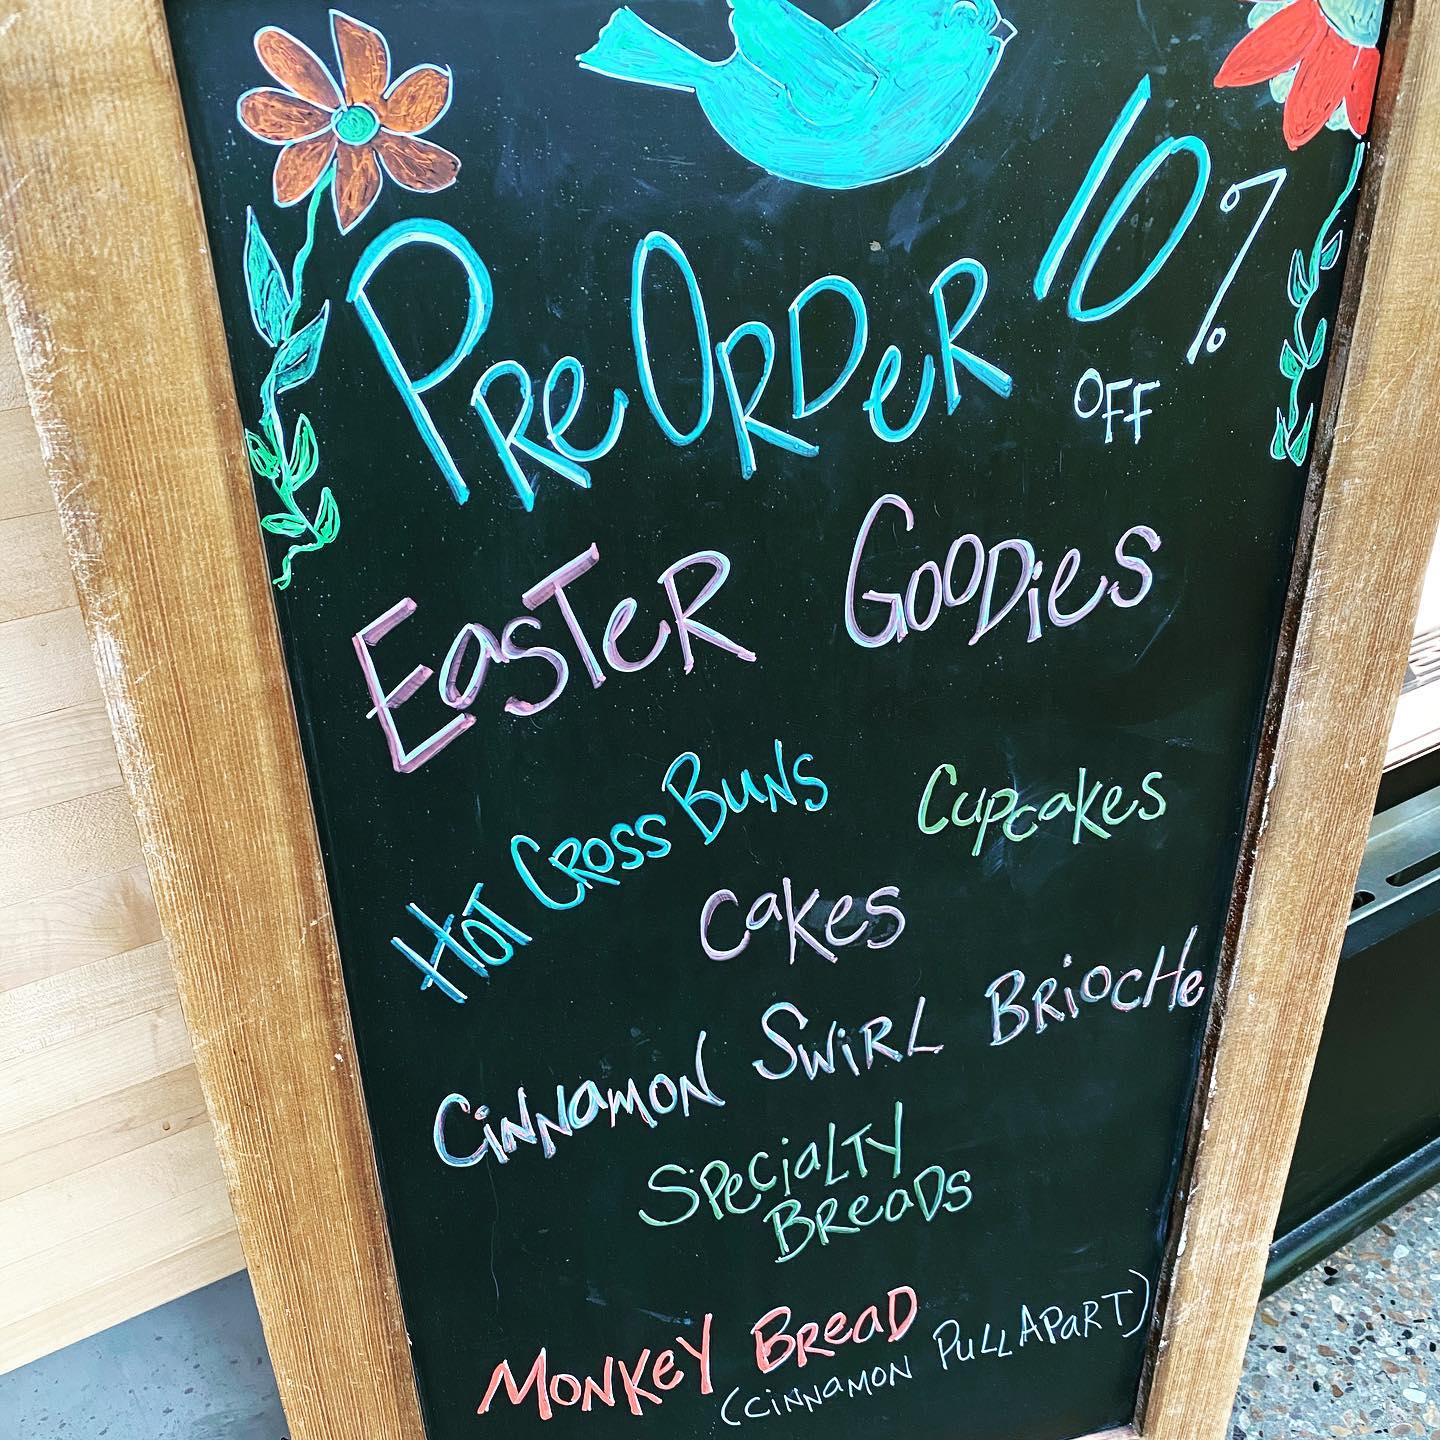 PreOrder 10%
OFF
Easter Goodies
Hot Cross Buns
Cupcakes
Cakes
Cinnamon Swirl Brioche
Specialty
Breads
Monkey Bread
(Cinnamon Pull Apart)